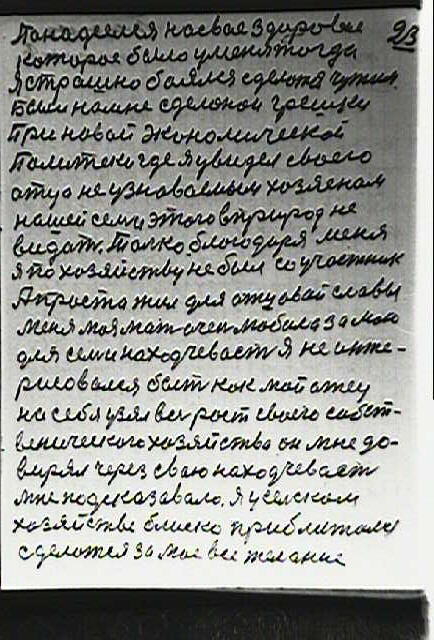 Понадеелся на свае здоровие
93
которое было у меня тогда
я страшно боялся сделатя чужим.
Были на мне сделоной грешки
При новой экономической
Политеки где я увидел своего
отца не узноваемым хозяеном
нашей семи этого в природ не
видат. Толко благодоря меня
я по хозяйству не был соучостник
А проста жил для отцовай славы
меня моя мат очен любила за мою
для семи находчеваст я не инте-
рисовался быт как мой отец
на себя узял вес рост своего собст-
веническога хозяйства он мне до-
вирял через сваю находчеваст
мне подсказавало. я у селском
хозяйстве близко приблитолся
сделатся за мое все желание